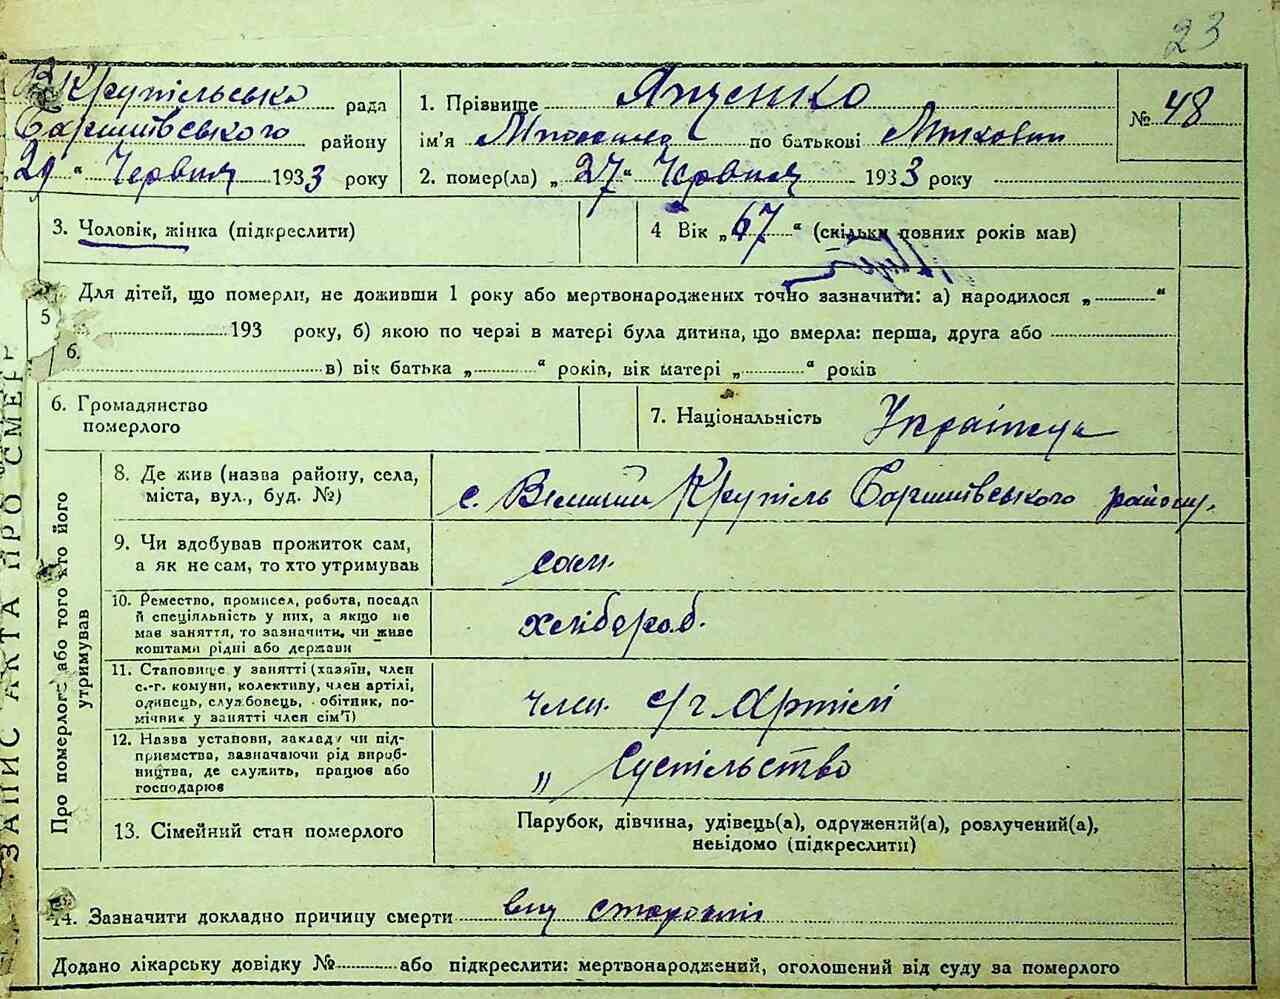 23
В Крупільська рада
Баришівського району
29 " Червня 1933 року
1. Прізвище Яценко
№ 48
ім'я по батькові
2. помер(ла) „ 27 " Червня 1933 року
3. Чоловік, жінка (підкреслити)
4 Вік „ 67 " (скільки повних років мав)
5 Для дітей, що померли, не доживши 1 року або мертвонароджених точно зазначити: а) народилося „ "
193 року, б) якою по черзі в матері була дитина, що вмерла: перша, друга або
6.
в) вік батька „ " років, вік матері „ " років
6. Громадянство
померлого
7. Національність Українець
ЗАПИС АКТА ПРО СМЕР
Про померлого або того хто його
утримував
8. Де жив (назва району, села,
міста, вул., буд. №)
с. Великий Крупіль Баришівського району.
9. Чи здобував прожиток сам,
а як не сам, то хто утримував
сам.
10. Ремество, промисел, робота, посада
й спеціяльність у них, а якщо не
мав заняття, то зазначити, чи живе
коштами рідні або держави
хлібороб.
11. Становище у занятті (хазяїн, член
с.-г. комуни, колективу, член артілі,
одинець, службовець, обітник, по-
мічник у занятті член сім'ї)
член. с/г Артілі
12. Назва установи, закладу чи під-
приємства, зазначаючи рід вироб-
ництва, де служить, працює або
господарює
„ Суспільство
13. Сімейний стан померлого
Парубок, дівчина, удівець(а), одружений(а), розлучений(а),
невідомо (підкреслити)
14. Зазначити докладно причину смерти від старости
Додано лікарську довідку № або підкреслити: мертвонароджений, оголошений від суду за померлого